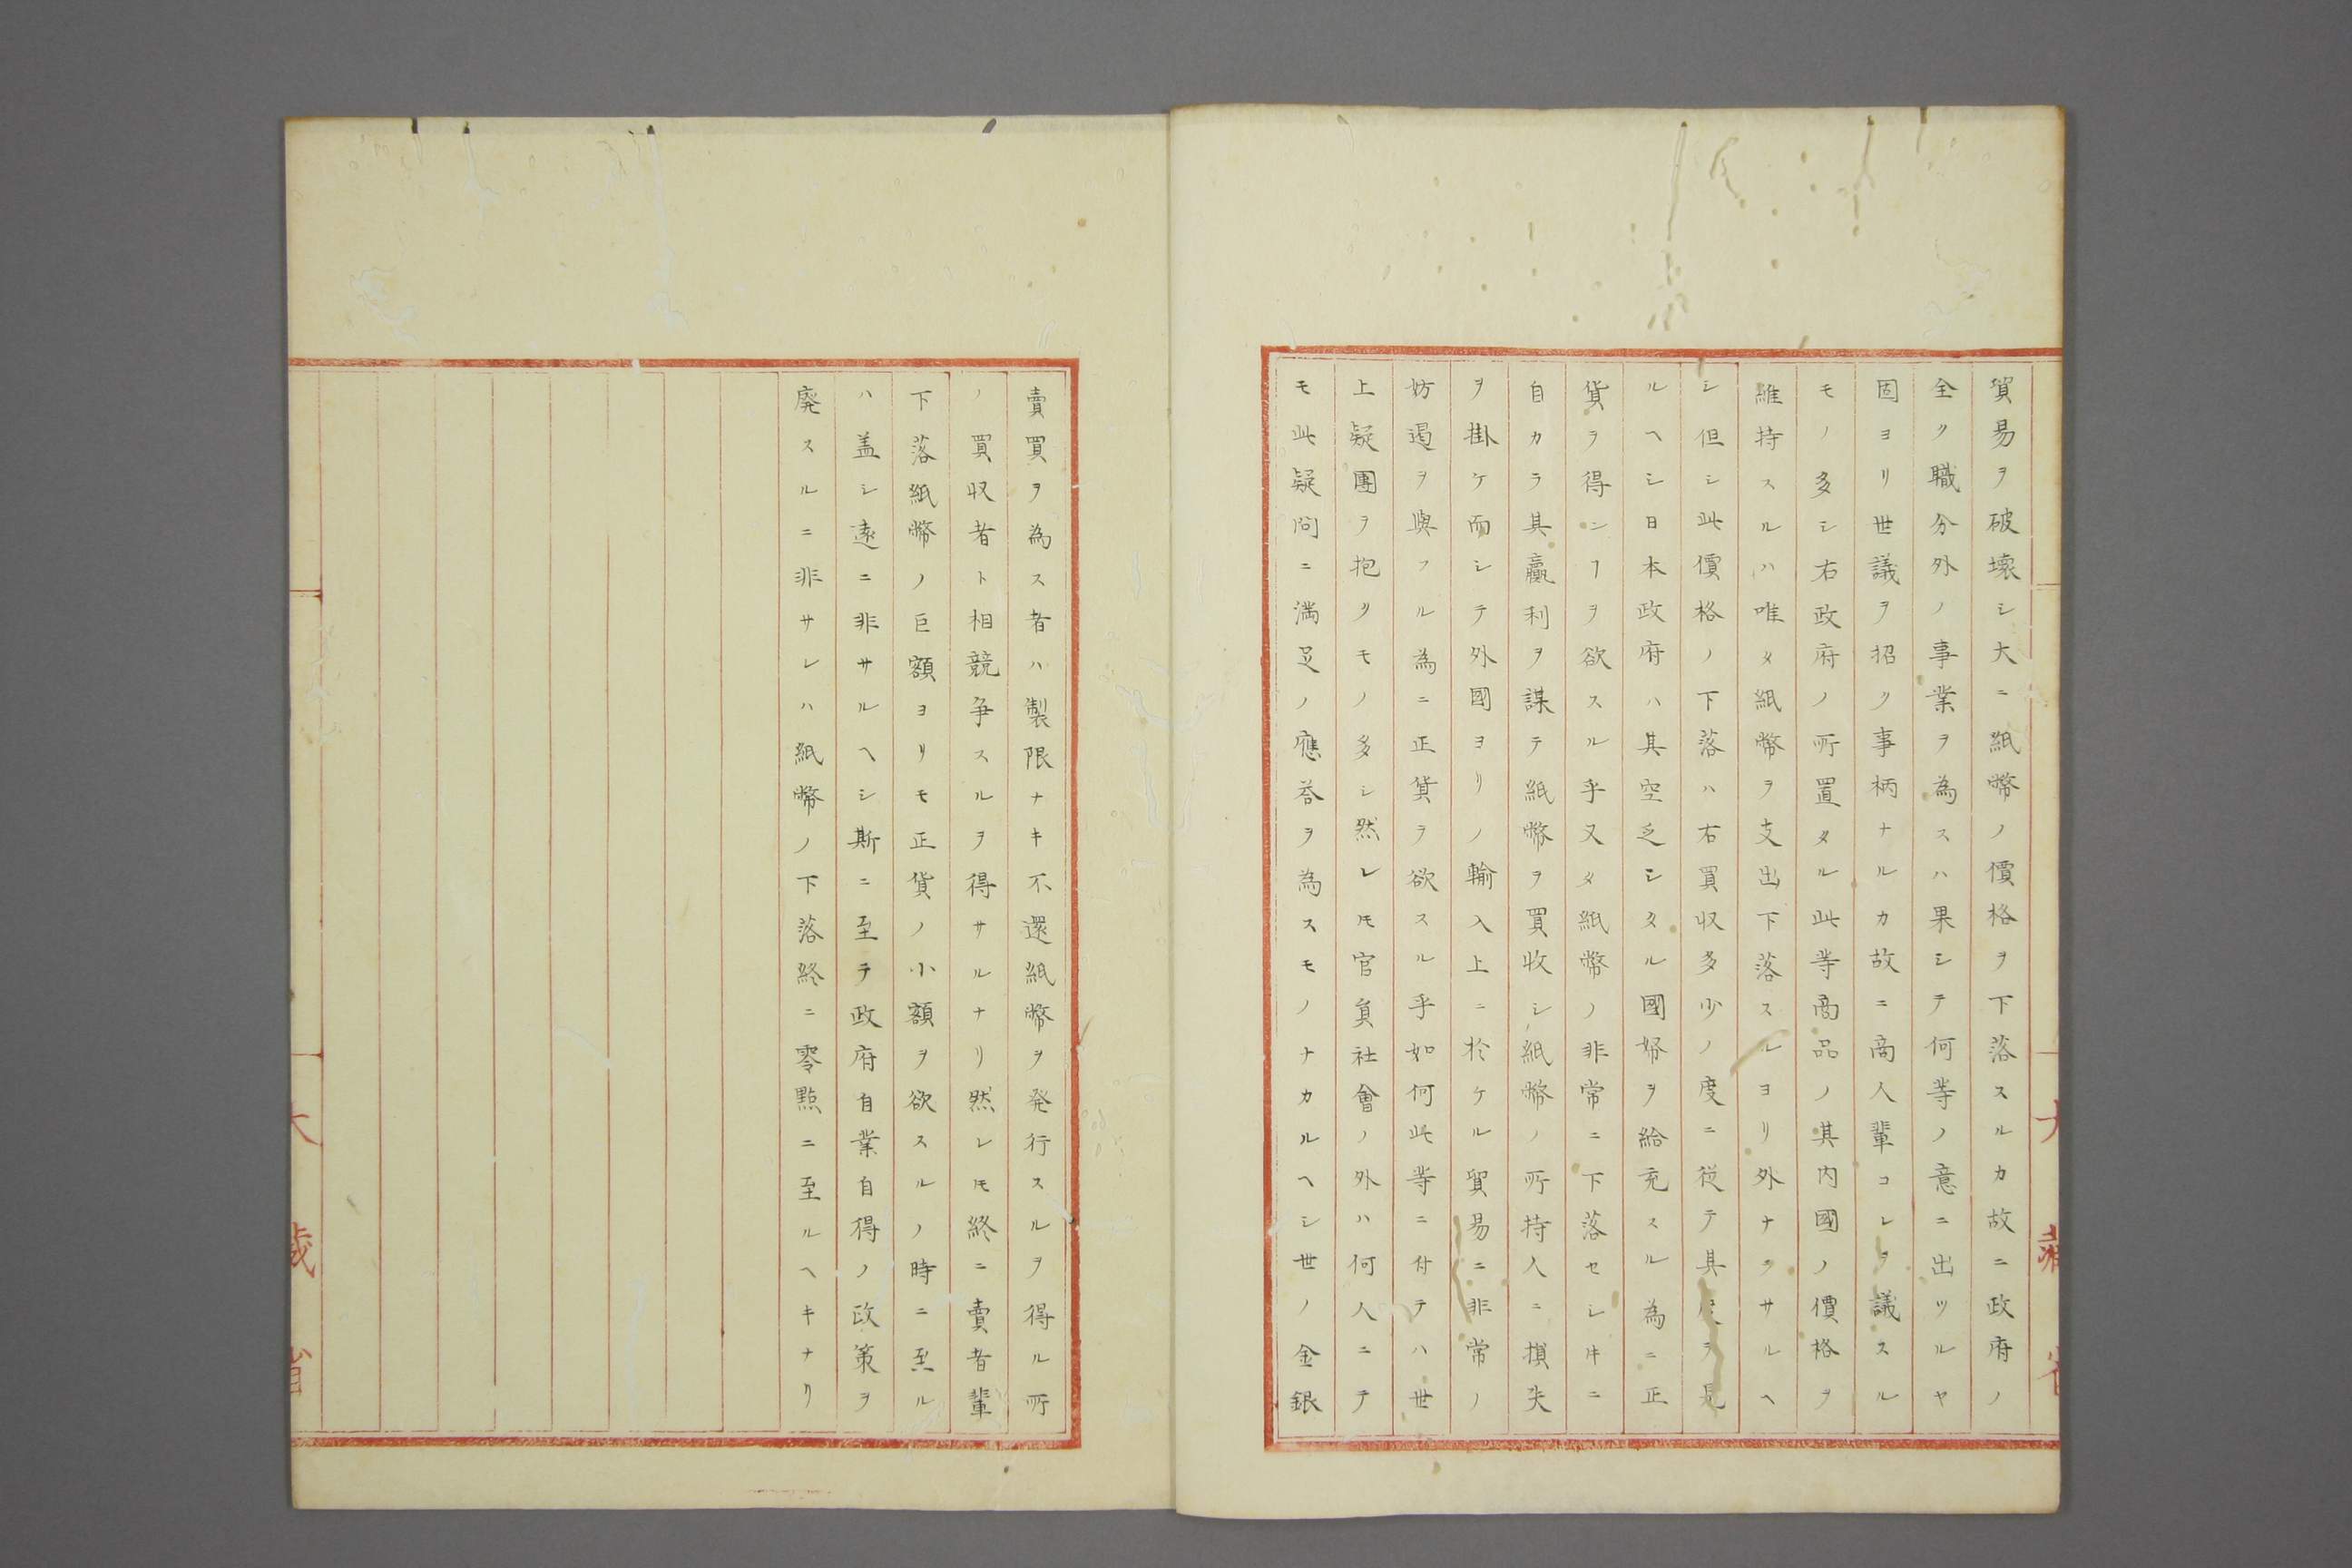 貿易ヲ破壊シ大ニ紙幣ノ價格ヲ下落スルカ故ニ政府ノ
全ク職分外ノ事業ヲ為スハ果シテ何等ノ意ニ出ツルヤ
固ヨリ世議ヲ招ク事柄ナルカ故ニ商人輩コレヲ議スル
モノ多シ右政府ノ所置タル此等商品ノ其内國ノ價格ヲ
維持スルハ唯タ紙幣ヲ支出下落スルヨリ外ナラサルヘ
シ但シ此價格ノ下落ハ右買収多少ノ度ニ従テ其ヲ見
ルヘシ日本政府ハ其空乏シタル國帑ヲ給充スル為ニ正
貨ヲ得ンヿヲ欲スル乎又タ紙幣ノ非常ニ下落セシ牛ニ
自カラ其贏利ヲ謀テ紙幣ヲ買收シ紙幣ノ所持人ニ損失
ヲ掛ケ而シテ外國ヨリノ輸入上ニ於ケル貿易ニ非常ノ
妨遏ヲ與フル為ニ正貨ヲ欲スル乎如何此等ニ付テハ世
上疑團ヲ抱クモノ多シ然レ𪜈官員社會ノ外ハ何人ニテ
モ此疑問ニ満足ノ應荅ヲ為スモノナカルヘシ世ノ金銀
賣買ヲ為ス者ハ製限ナキ不還紙幣ヲ発行スルヲ得ル所
ノ買収者ト相競争スルヲ得サルナリ然レ𪜈終ニ賣者輩
下落紙幣ノ巨額ヨリモ正貨ノ小額ヲ欲スルノ時ニ至ル
ハ盖シ遠ニ非サルヘシ斯ニ至テ政府自業自得ノ政策ヲ
廃スルニ非サレハ紙幣ノ下落終ニ零點ニ至ルヘキナリ
大藏省